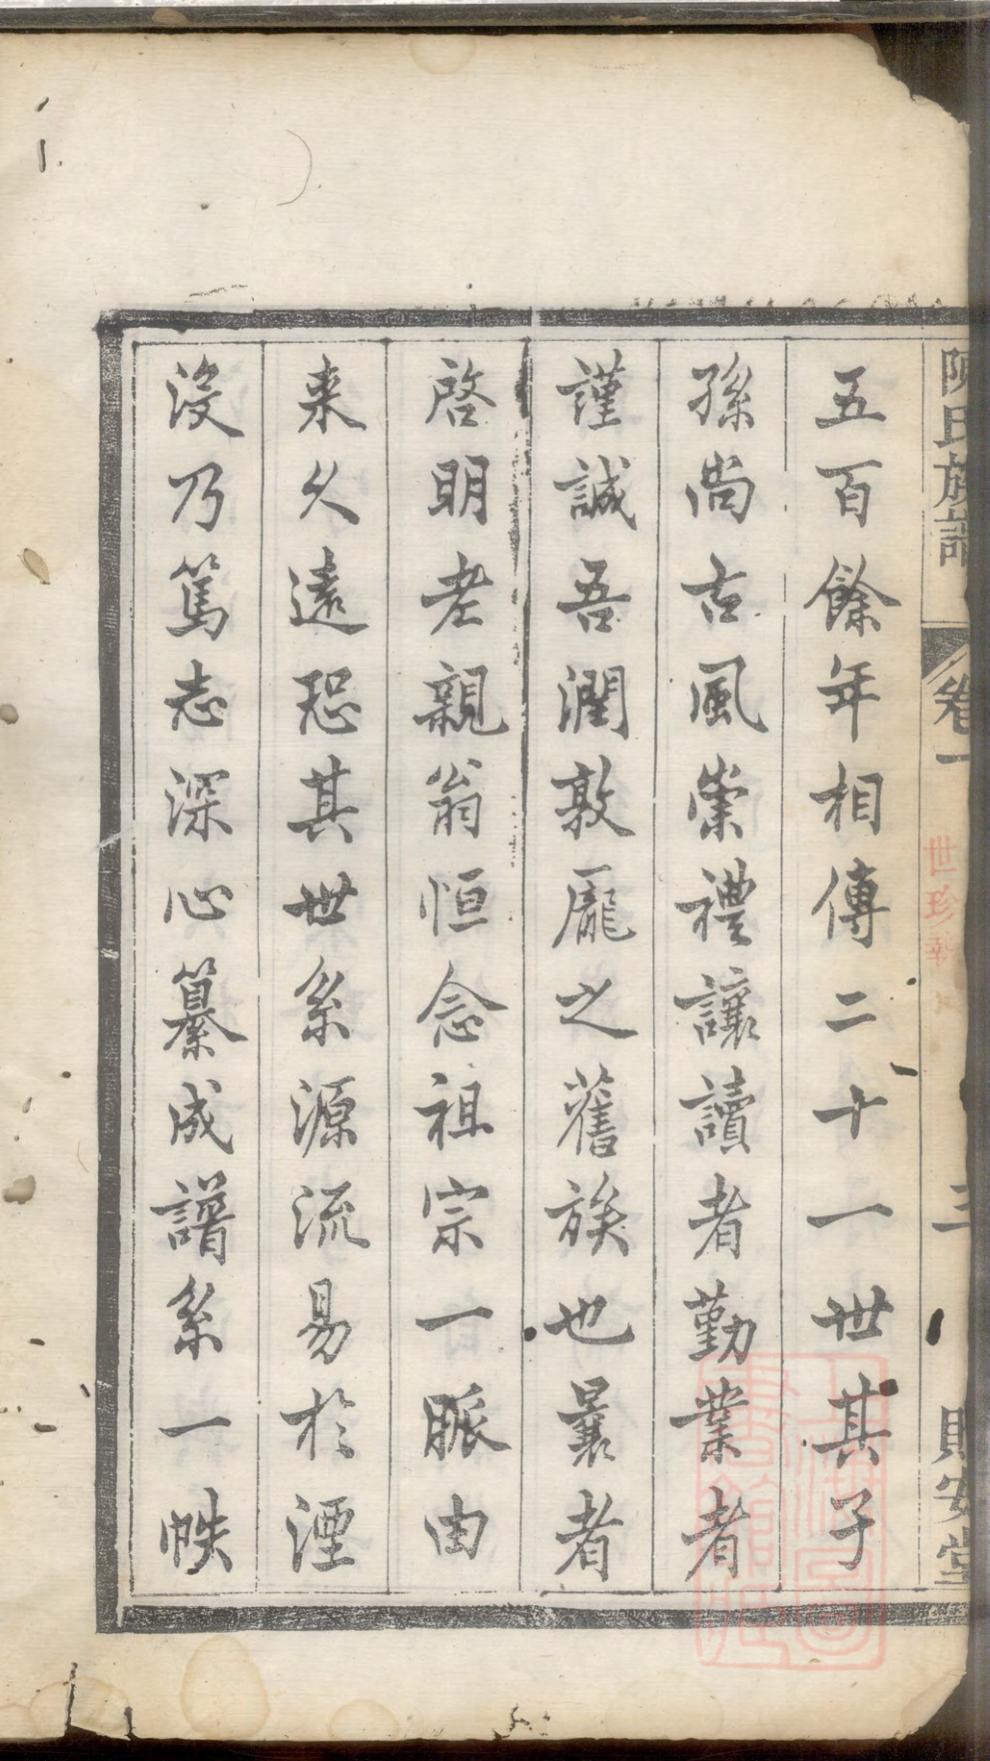 陳氏族譜
卷一
三
則安堂
五百餘年相傳二十一世其子
孫尚古風崇禮讓讀者勤業者
謹誠吾潤敦龐之舊族也曩者
啓明老親翁恒念祖宗一脈由
來久遠恐其世系源流易於湮
沒乃篤志深心纂成譜系一帙
上海圖書館藏